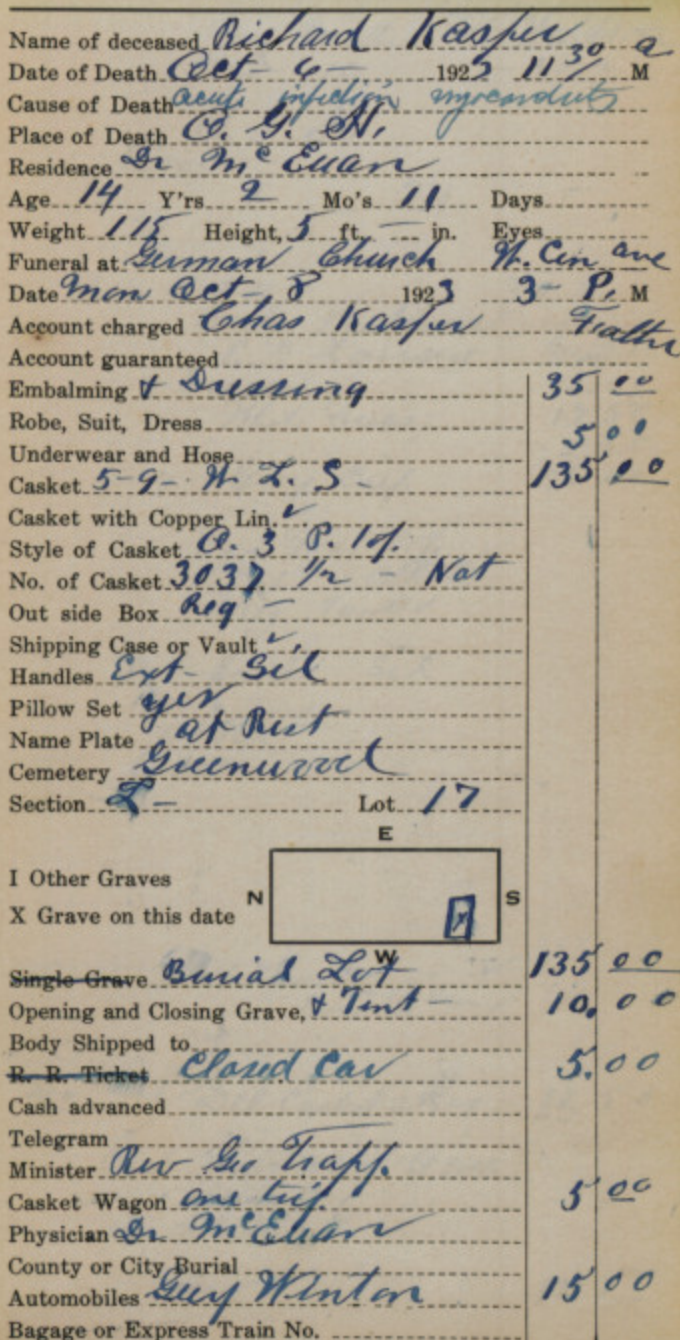 Name of deceased Richard Kasper
Date of Death Oct - 6 - 1923 11 30 a M
Cause of Death acute infection myocarditis
Place of Death O. G. H.
Residence Dr McEuan
Age 14 Y'rs 2 Mo's 11 Days
Weight 115 Height, 5 ft. — in. Eyes
Funeral at German Church W. Cen ave
Date Mon Oct - 8 1923 3 - P. M
Account charged Chas Kasper Father
Account guaranteed
Embalming & Dressing 35 00
Robe, Suit, Dress
Underwear and Hose 5 00
Casket 5-9- W. L. S - 135 00
Casket with Copper Lin. ✓
Style of Casket O. 3 P.
No. of Casket 3037 1/2 - Nat
Out side Box Reg -
Shipping Case or Vault ✓
Handles Ext - Sil
Pillow Set yes
Name Plate at Rest
Cemetery Greenwood
Section L - Lot 17
E
I Other Graves
N S
X Grave on this date X
W
Single Grave Burial Lot 135 00
Opening and Closing Grave, & Tent - 10. 00
Body Shipped to
R. R. Ticket Closed Car 5. 00
Cash advanced
Telegram
Minister Rev Geo Trapp.
Casket Wagon one trip 5 00
Physician Dr McEuan
County or City Burial
Automobiles Guy Winton 15 00
Bagage or Express Train No.